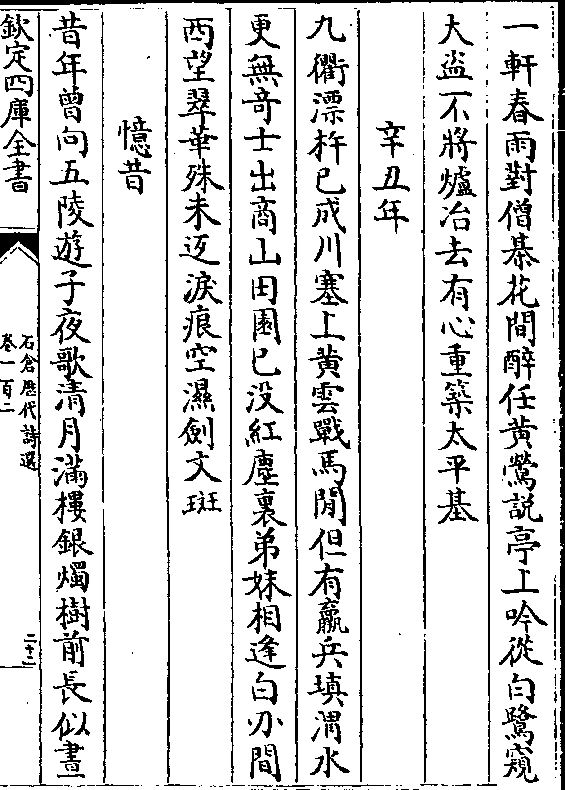 一軒春雨對僧棊花間醉任黄鶯説亭上吟從白鷺窺
大盜不將爐冶去有心重築太平基
辛丑年
九衢漂杵已成川塞上黄雲戰馬閒但有羸兵填渭水
更無奇士出商山田園已没紅塵裏弟妹相逢白刃間
西望翠華殊未返淚痕空濕劍文斑
憶昔
昔年曾向五陵遊子夜歌清月滿樓銀燭樹前長似晝
欽定四庫全書
石倉歴代詩選
卷一百二
二十二